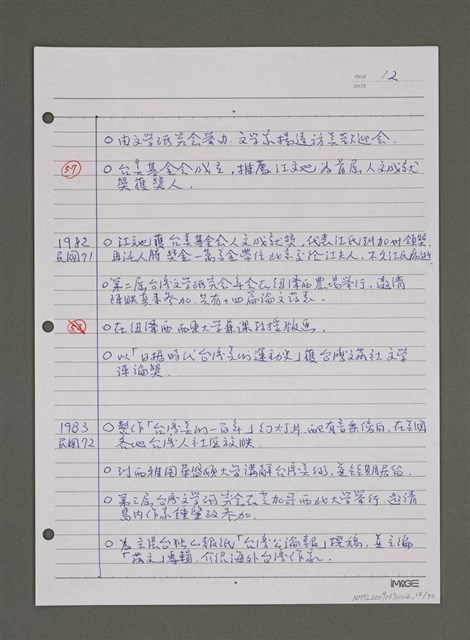 PAGE 12
DATE
○由文學研究會舉办.文學家楊逵訪美歡迎会.
57 ○台美基金会成立，推薦江文也為首屆人文成就
獎獲獎人.
1982 ○江文也獲台美基金会人文成就獎，代表江氏到加州領獎
民國71 再託人將獎金一萬美金帶往北京交給江夫人，不久江氏病逝.
○第二屆台灣文學研究会年会在紐澤西農場舉行，邀請
陳映真來參加.共有十四篇論文发表.
58 ○在紐澤西西東大學兼課教授版画.
○以「日據時代台灣美術運動史」獲台灣文藝社文學
評論獎.
1983 ○製作「台灣美術一百年」幻灯片，配有音樂傍白，在美國
民國72 各地台灣人社区放映.
○到西雅圖華盛頓大學講解台灣美術，
○第三屆台灣文學研究会在芝加哥西北大學舉行.邀請
島內作家鍾肇政參加.
○為主張台独之報紙「台灣公論報」撰稿，並主編
「藝文」專輯.介紹海外台灣作家.
IMAGE